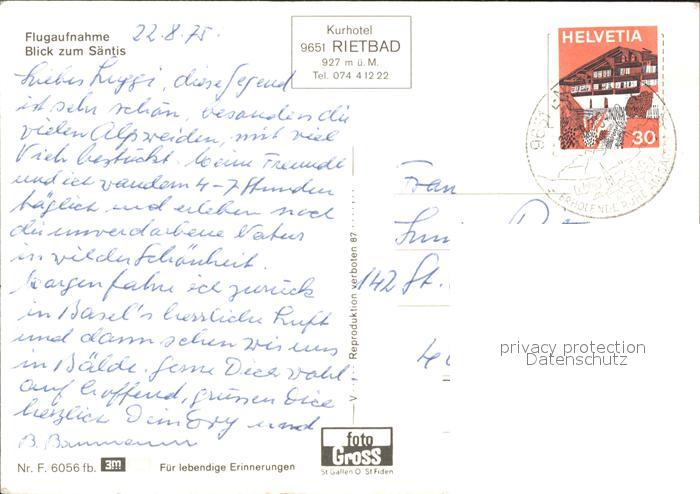 Flugaufnahme
Blick zum Säntis
22.8.75.
Kurhotel
9651 RIETBAD
927 m ü. M.
Tel. 074 4 12 22
HELVETIA
30
Liebes Luggi, diese Gegend
ist sehr schön, besonders die
vielen Alpweiden, mit viel
Vieh bestückt. Meine Freunde
und ich wandern 4-7 Stunden
täglich und erleben noch
die unverdorbene Natur
in wilder Schönheit.
Morgen fahre ich zurück
in Basel's herrliche Luft
und dann sehen wir uns
in Bälde. Gerne Dich wohl
auf hoffend, grüssen Dich
herzlich Dein und
B. Baumann
Frau
142 St.
4
Reproduktion verboten 87
V
privacy protection
Datenschutz
foto
Gross
St Gallen O St Fiden
Nr. F. 6056 fb. 3m Für lebendige Erinnerungen